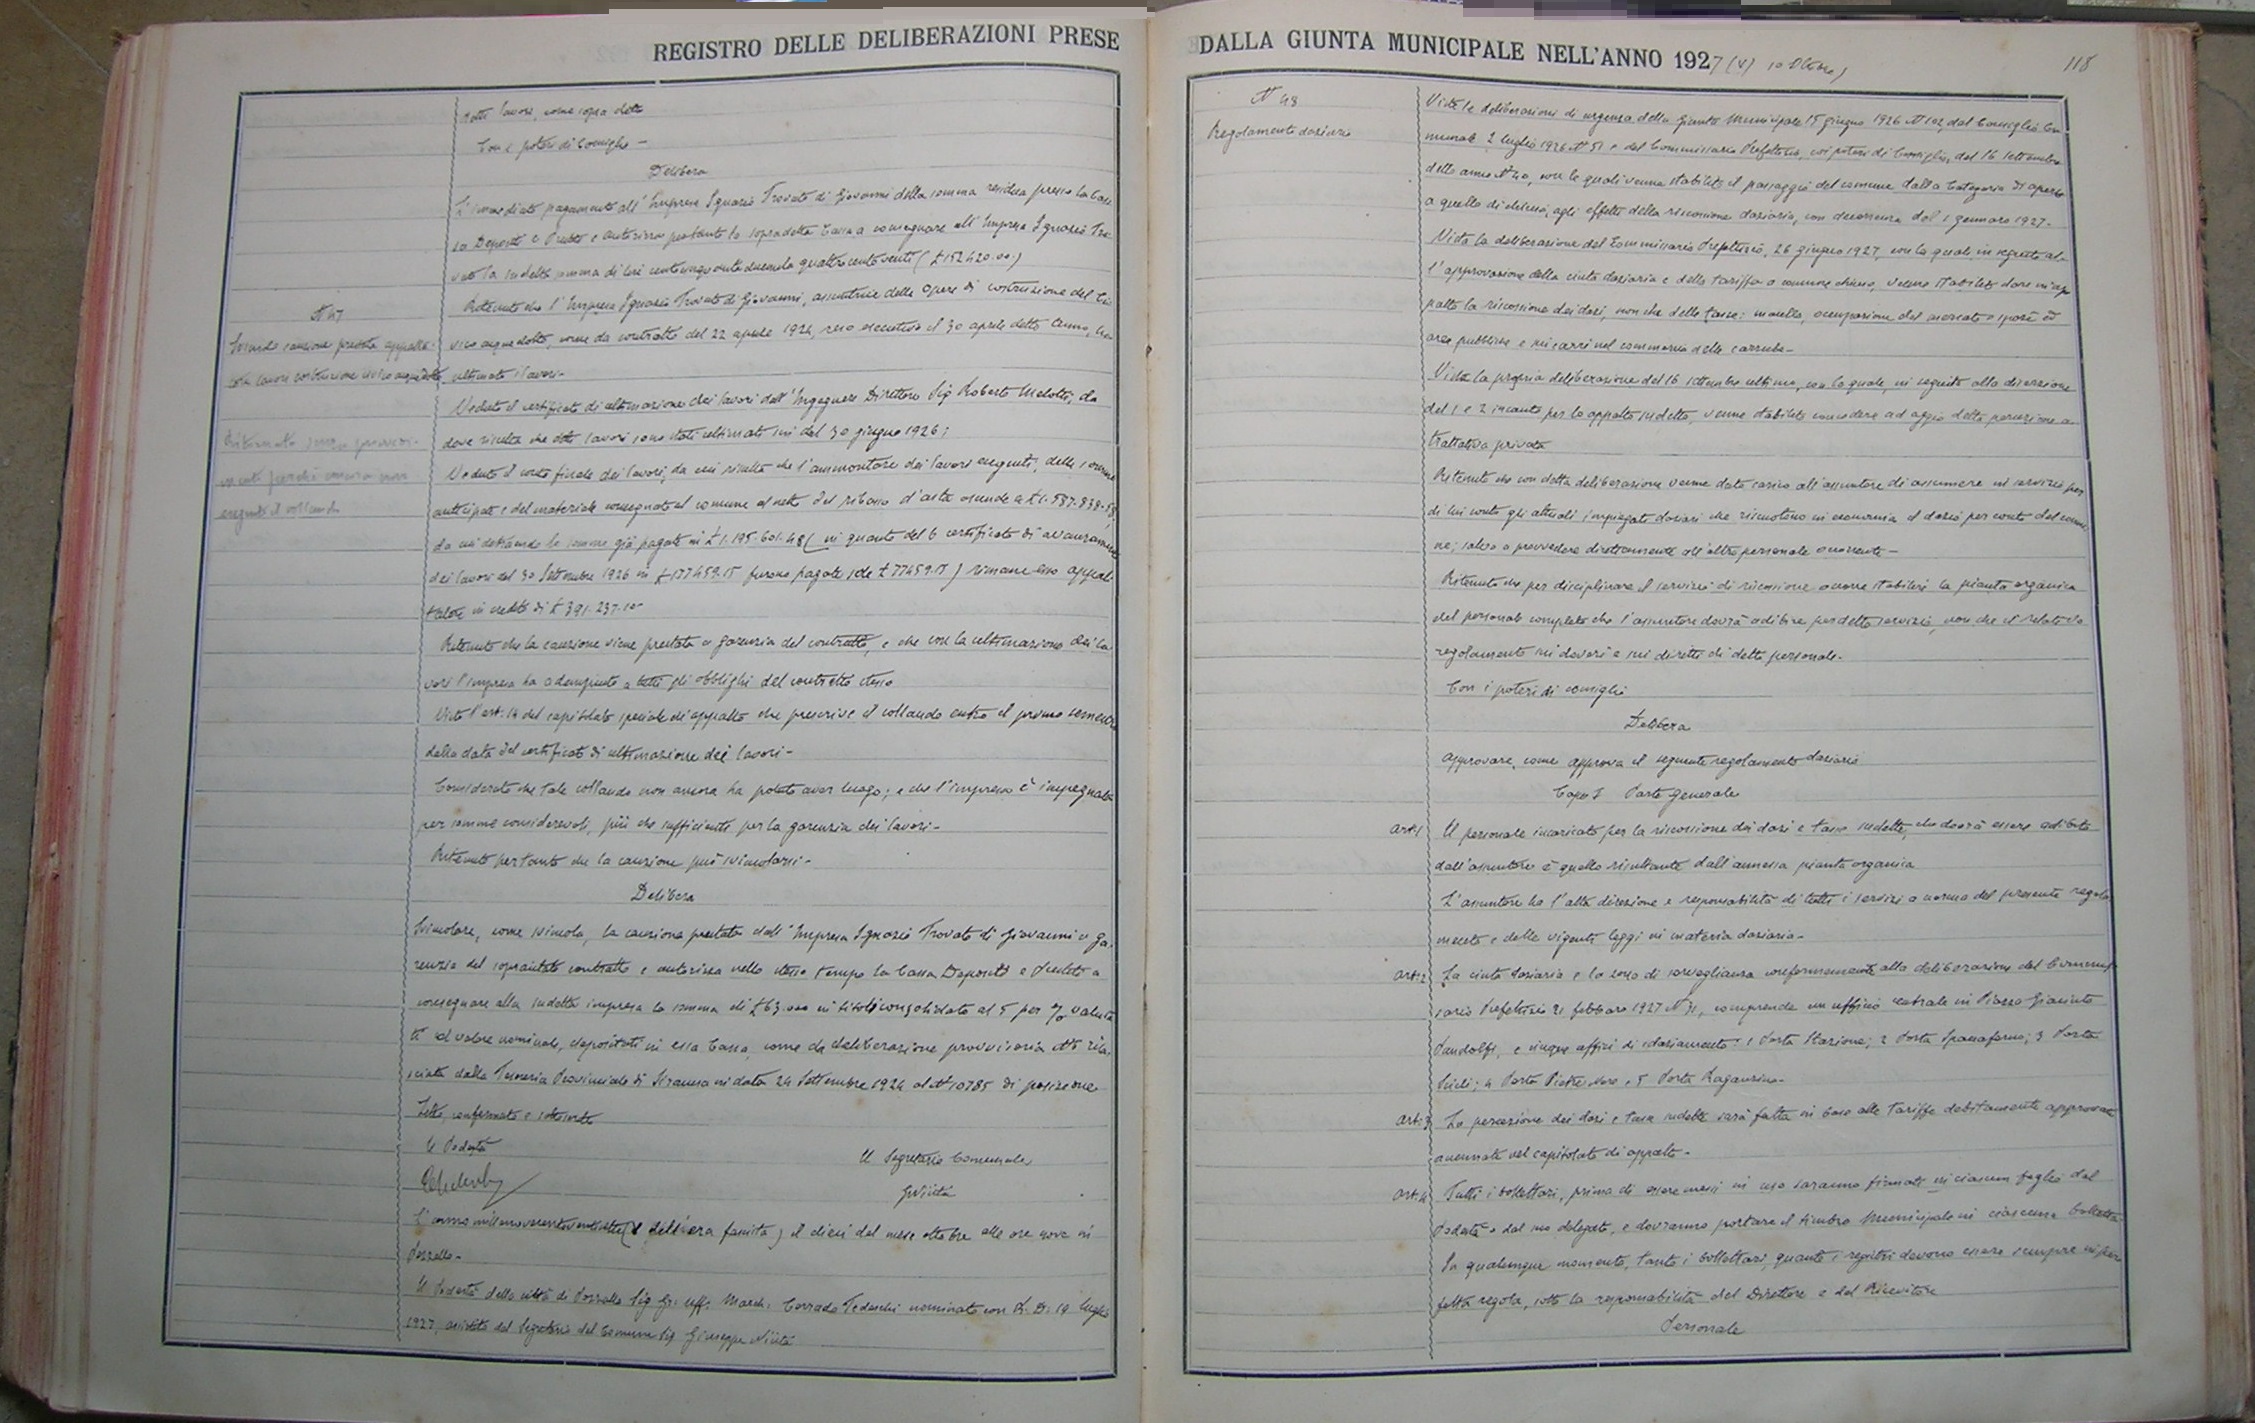 REGISTRO DELLE DELIBERAZIONI PRESE
detti lavori, come sopra detto
Con i poteri di Consiglio –
Delibera
L'immediato pagamento all'Impresa Ignazio Trovato di Giovanni della somma residua presso la Cas
sa Depositi e Prestiti e autorizza pertanto la sopradetta Cassa a consegnare all'Impresa Ignazio Tro
vato la sudetta somma di lire centocinquantaduemila quattrocentoventi (£ 152420.00)
N 47
Svincolo cauzione prestata appalta-
tore lavori costruzione civico acquedotto
Ritenuto che l'Impresa Ignazio Trovato di Giovanni, assuntrice delle opere di costruzione del Ci
vico acquedotto, come da contratto del 22 aprile 1924, reso esecutivo il 30 aprile detto anno, ha
ultimato i lavori –
Veduto il certificato di ultimazione dei lavori dell'Ingegnere Direttore Sig Roberto Melotti, da
dove risulta che detti lavori sono stati ultimati sin dal 30 giugno 1926;
Ritornato senza provvedi-
mento perchè ancora non
eseguito il collaudo
Veduto il conto finale dei lavori, da cui risulta che l'ammontare dei lavori eseguiti, delle somme
anticipate e del materiale consegnato al comune al netto del ribasso d'asta ascende a £ 1.587.838.58
da cui detraendo le somme già pagate in £ 1.195.601.48 (in quanto del 6 certificato di avanzamento
dei lavori del 30 Settembre 1926 in £ 177459.15 furono pagate sole £ 77459.15) rimane esso appal
tatore in credito di £ 391.237.10
Ritenuto che la cauzione viene prestata a garenzia del contratto, e che con la ultimazione dei la
vori l'impresa ha adempiuto a tutti gli obblighi del contratto stesso
Visto l'art: 14 del capitolato speciale di appalto che prescrive il collaudo entro il primo semestre
dalla data del certificato di ultimazione dei lavori –
Considerato che tale collaudo non ancora ha potuto aver luogo; e che l'impresa è impegnata
per somme considerevoli, più che sufficienti per la garenzia dei lavori –
Ritenuto pertanto che la cauzione può svincolarsi –
Delibera
Svincolare, come svincola, la cauzione prestata dall'Impresa Ignazio Trovato di Giovanni a ga-
renzia del sopracitato contratto e autorizza nello stesso tempo la Cassa Depositi e Prestiti a
consegnare alla sudetta impresa la somma di £ 63.000 in titoli consolidato al 5 per % valuta
ti al valore nominale, depositati in essa Cassa, come da deliberazione provvisoria rila
sciata dalla Tesoreria Provinciale di Siracusa in data 24 Settembre 1924 al N° 10785 di posizione
Letto, confermato e sottoscritto
Il Podestà
Il Segretario Comunale
GNicita
L'anno millenovecentoventisette (V dell'era fascista) il dieci del mese ottobre alle ore nove in
Pozzallo –
Il Podestà della città di Pozzallo Sig Gr. Uff. March. Corrado Tedeschi nominato con R. D. 19 luglio
1927, assistito dal Segretario del Comune Sig Giuseppe Nicita
DALLA GIUNTA MUNICIPALE NELL'ANNO 1927 (V) 10 Ottobre)
118
N 48
Regolamento daziario
Viste le deliberazioni di urgenza della Giunta Municipale 15 giugno 1926 N 102, del Consiglio Co
munale 2 luglio 1926 N° 51 e del Commissario Prefettizio, coi poteri di Consiglio, del 16 settembre
detto anno N° 40, con le quali venne stabilito il passaggio del comune dalla Categoria di aperto
a quella di chiuso, agli effetti della riscossione daziaria, con decorrenza dal 1 gennaro 1927 –
Vista la deliberazione del Commissario Prefettizio, 26 giugno 1927, con la quale in seguito al-
l'approvazione della cinta daziaria e della tariffa a comune chiuso, venne stabilito dare in ap
palto la riscossione dei dazi, non che delle tasse: macello, occupazione del mercato o spazi ed
aree pubbliche e sui carri nel commercio delle carrube –
Vista la propria deliberazione del 16 settembre ultimo, con la quale, in seguito alla diserzione
del 1 e 2 incanto per lo appalto sudetto, venne stabilito concedere ad aggio detta percezione a
trattativa privata
Ritenuto che con detta deliberazione venne dato carico all'assuntore di assumere in servizio per
di lui conto gli attuali impiegati daziari che riscuotono in economia il dazio per conto del comu
ne; salvo a provvedere direttamente all'altro personale occorrente –
Ritenuto che per disciplinare il servizio di riscossione occorre stabilirsi la pianta organica
del personale completo che l'assuntore dovrà adibire per detto servizio, non che il relativo
regolamento sui doveri e sui diritti di detto personale –
Con i poteri di consiglio
Delibera
approvare, come approva il seguente regolamento daziario
Capo I Parte Generale
art: 1 Il personale incaricato per la riscossione dei dazi e tasse sudette, che dovrà essere adibito
dall'assuntore è quello risultante dall'annessa pianta organica
L'assuntore ha l'alta direzione e responsabilità di tutti i servizi a norma del presente regola
mento e delle vigenti leggi in materia daziaria –
art: 2 La cinta daziaria e la zona di sorveglianza conformemente alla deliberazione del Commis
sario Prefettizio 21 febbraro 1927 N° 31, comprende un ufficio centrale in Piazza Giacinto
Pandolfi, e cinque uffici di sdaziamento: 1 Porta Stazione; 2 Porta Spaccaforno; 3 Porta
Scicli; 4 Porta Pietre Nere; 5 Porta Raganzino –
art: 3 La percezione dei dazi e tasse sudette sarà fatta in base alle tariffe debitamente approvate
annessate nel capitolato di appalto –
art. 4 Tutti i bollettari, prima di essere messi in uso saranno firmati in ciascun foglio dal
Podestà o dal suo delegato, e dovranno portare il timbro Municipale in ciascuna bolletta
In qualunque momento, tanto i bollettari, quanto i registri devono essere sempre in per
fetta regola, sotto la responsabilità del Direttore e del Ricevitore
Personale